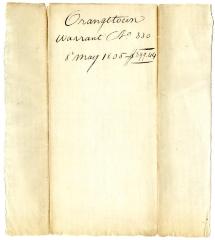 Orangetown
Warrant No 330
8 May 1805